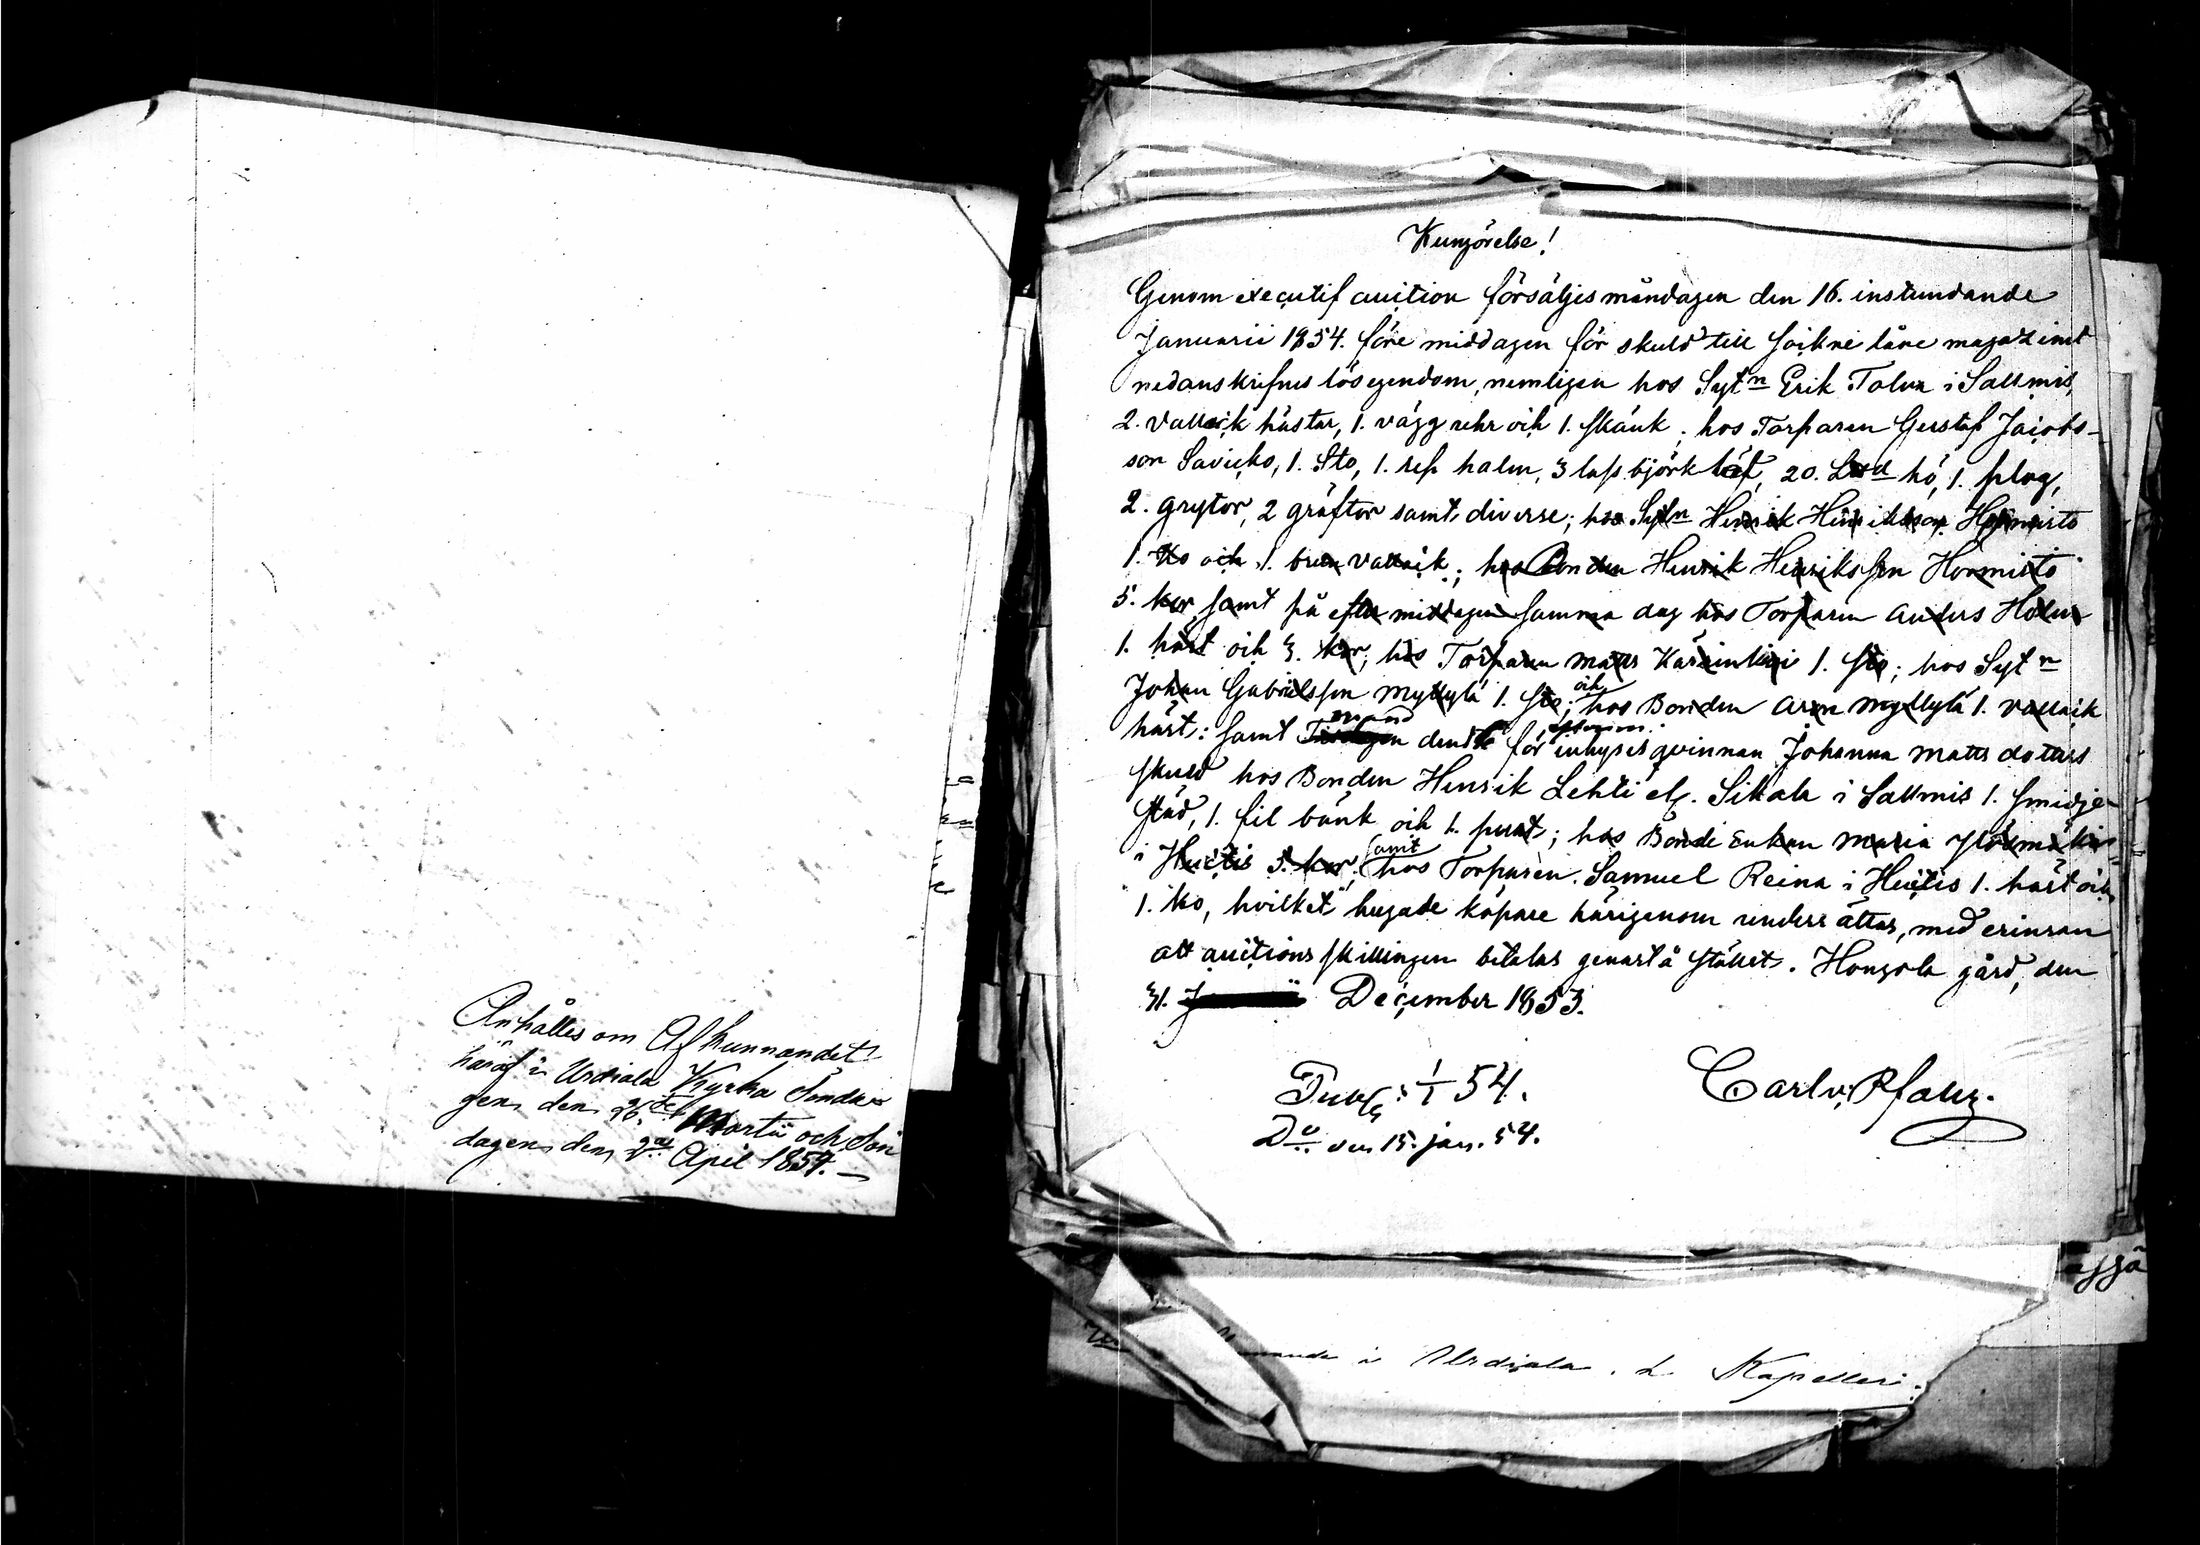 Anhålles om Afkunnandet
häraf i Urdiala Kyrka Sönda-
gen den 26te Martii och Sön
dagen den 2a April 1854.
Kungörelse!
Genom executif auction försäljes måndagen den 16. instundande
Januarii 1854. före middagen för skuld till Sockne låne magazinet
nedanskrifne lösegendom, nemligen hos Sytn Erik Tolva i Salmis,
2. vallack hästar, 1. vägg uhr och 1. skänk; hos Torparen Gustaf Jacobs-
son Savicko, 1. Sto, 1. ref halm, 3 lass björk löf, 20. Lisd hö, 1. plog,
2. grytor, 2 gräftor samt diverse; hos Sytn Henrik Henriksson Hormisto
1. Ko och 1. brun vallack; hos Bonden Henrik Henriksson Hormisto
5. kor samt på efter middagen samma dag hos Torparen Anders Holm
1. häst och 3. kor; hos Torparen Matts 1. sto; hos Sytn
Johan Gabrielsson Myllylä 1. sto; och hos Bonden Aron Myllylä 1. vallack
häst: samt för inhyses qvinnan Johanna Matts dotters
skuld hos Bonden Henrik Lehti el. Sikala i Salmis 1. smidje
städ, 1. fil bänk och 1. ; hos Bonde Enkan Maria
i Huctis 5. kor; samt hos Torparen Samuel Reina i Huctis 1. häst och
1. ko, hvilket hugade köpare härigenom underrättas, med erinran
att auctions skillingen betalas genast å stället. Honkola gård, den
31. December 1853.
Publ: 1/1 54.
Do den 15. jan. 54.
Carl v. Pfaler.
ande i Urdiala. Kapelleri.